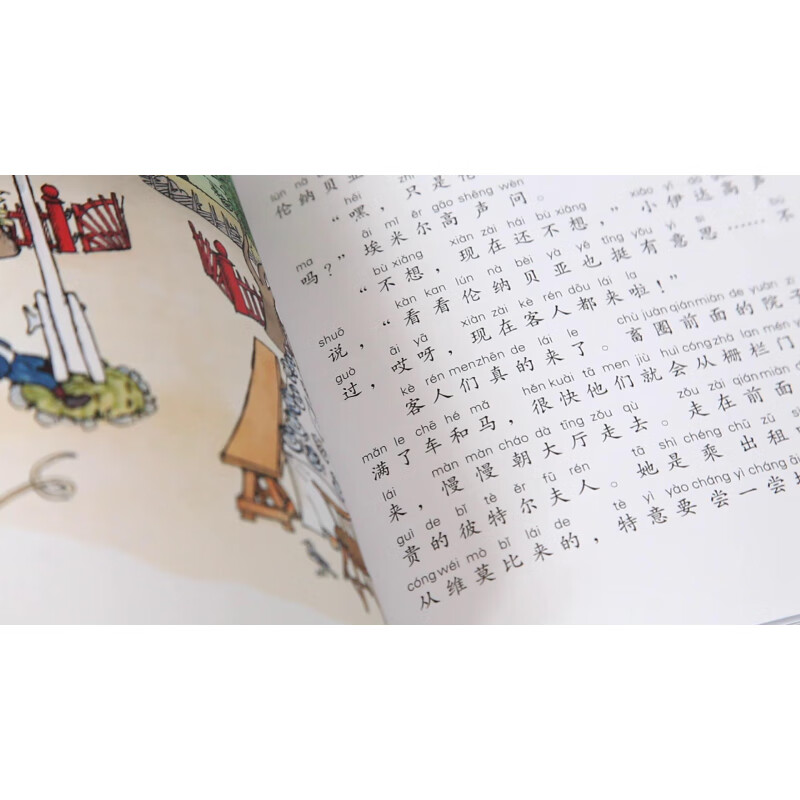 lún nà
伦纳贝亚
hēi zhǐ
“嘿，只是伦
ma āi mǐ ěr gāo shēng wèn
吗？”埃米尔高声问。
bù xiǎng xiàn zài hái bù xiǎng xiǎo yī dá gāo
“不想，现在还不想，”小伊达高声
shuō kàn kan lún nà bèi yà yě tǐng yǒu yì si
说，“看看伦纳贝亚也挺有意思……不
guò āi yā xiàn zài kè rén dōu lái la
过，哎呀，现在客人都来啦！”
kè rén men zhēn de lái le chù juàn qián miàn de yuàn zi
客人们真的来了。畜圈前面的院子
mǎn le chē hé mǎ hěn kuài tā men jiù huì cóng zhà lan mén
满了车和马，很快他们就会从栅栏门
lái màn màn cháo dà tīng zǒu qù zǒu zài qián miàn
来，慢慢朝大厅走去。走在前面
guì de bǐ tè ěr fū rén tā shì chéng chū zū
贵的彼特尔夫人。她是乘出租
cóng wéi mò bǐ lái de tè yì yào cháng yì cháng
从维莫比来的，特意要尝一尝